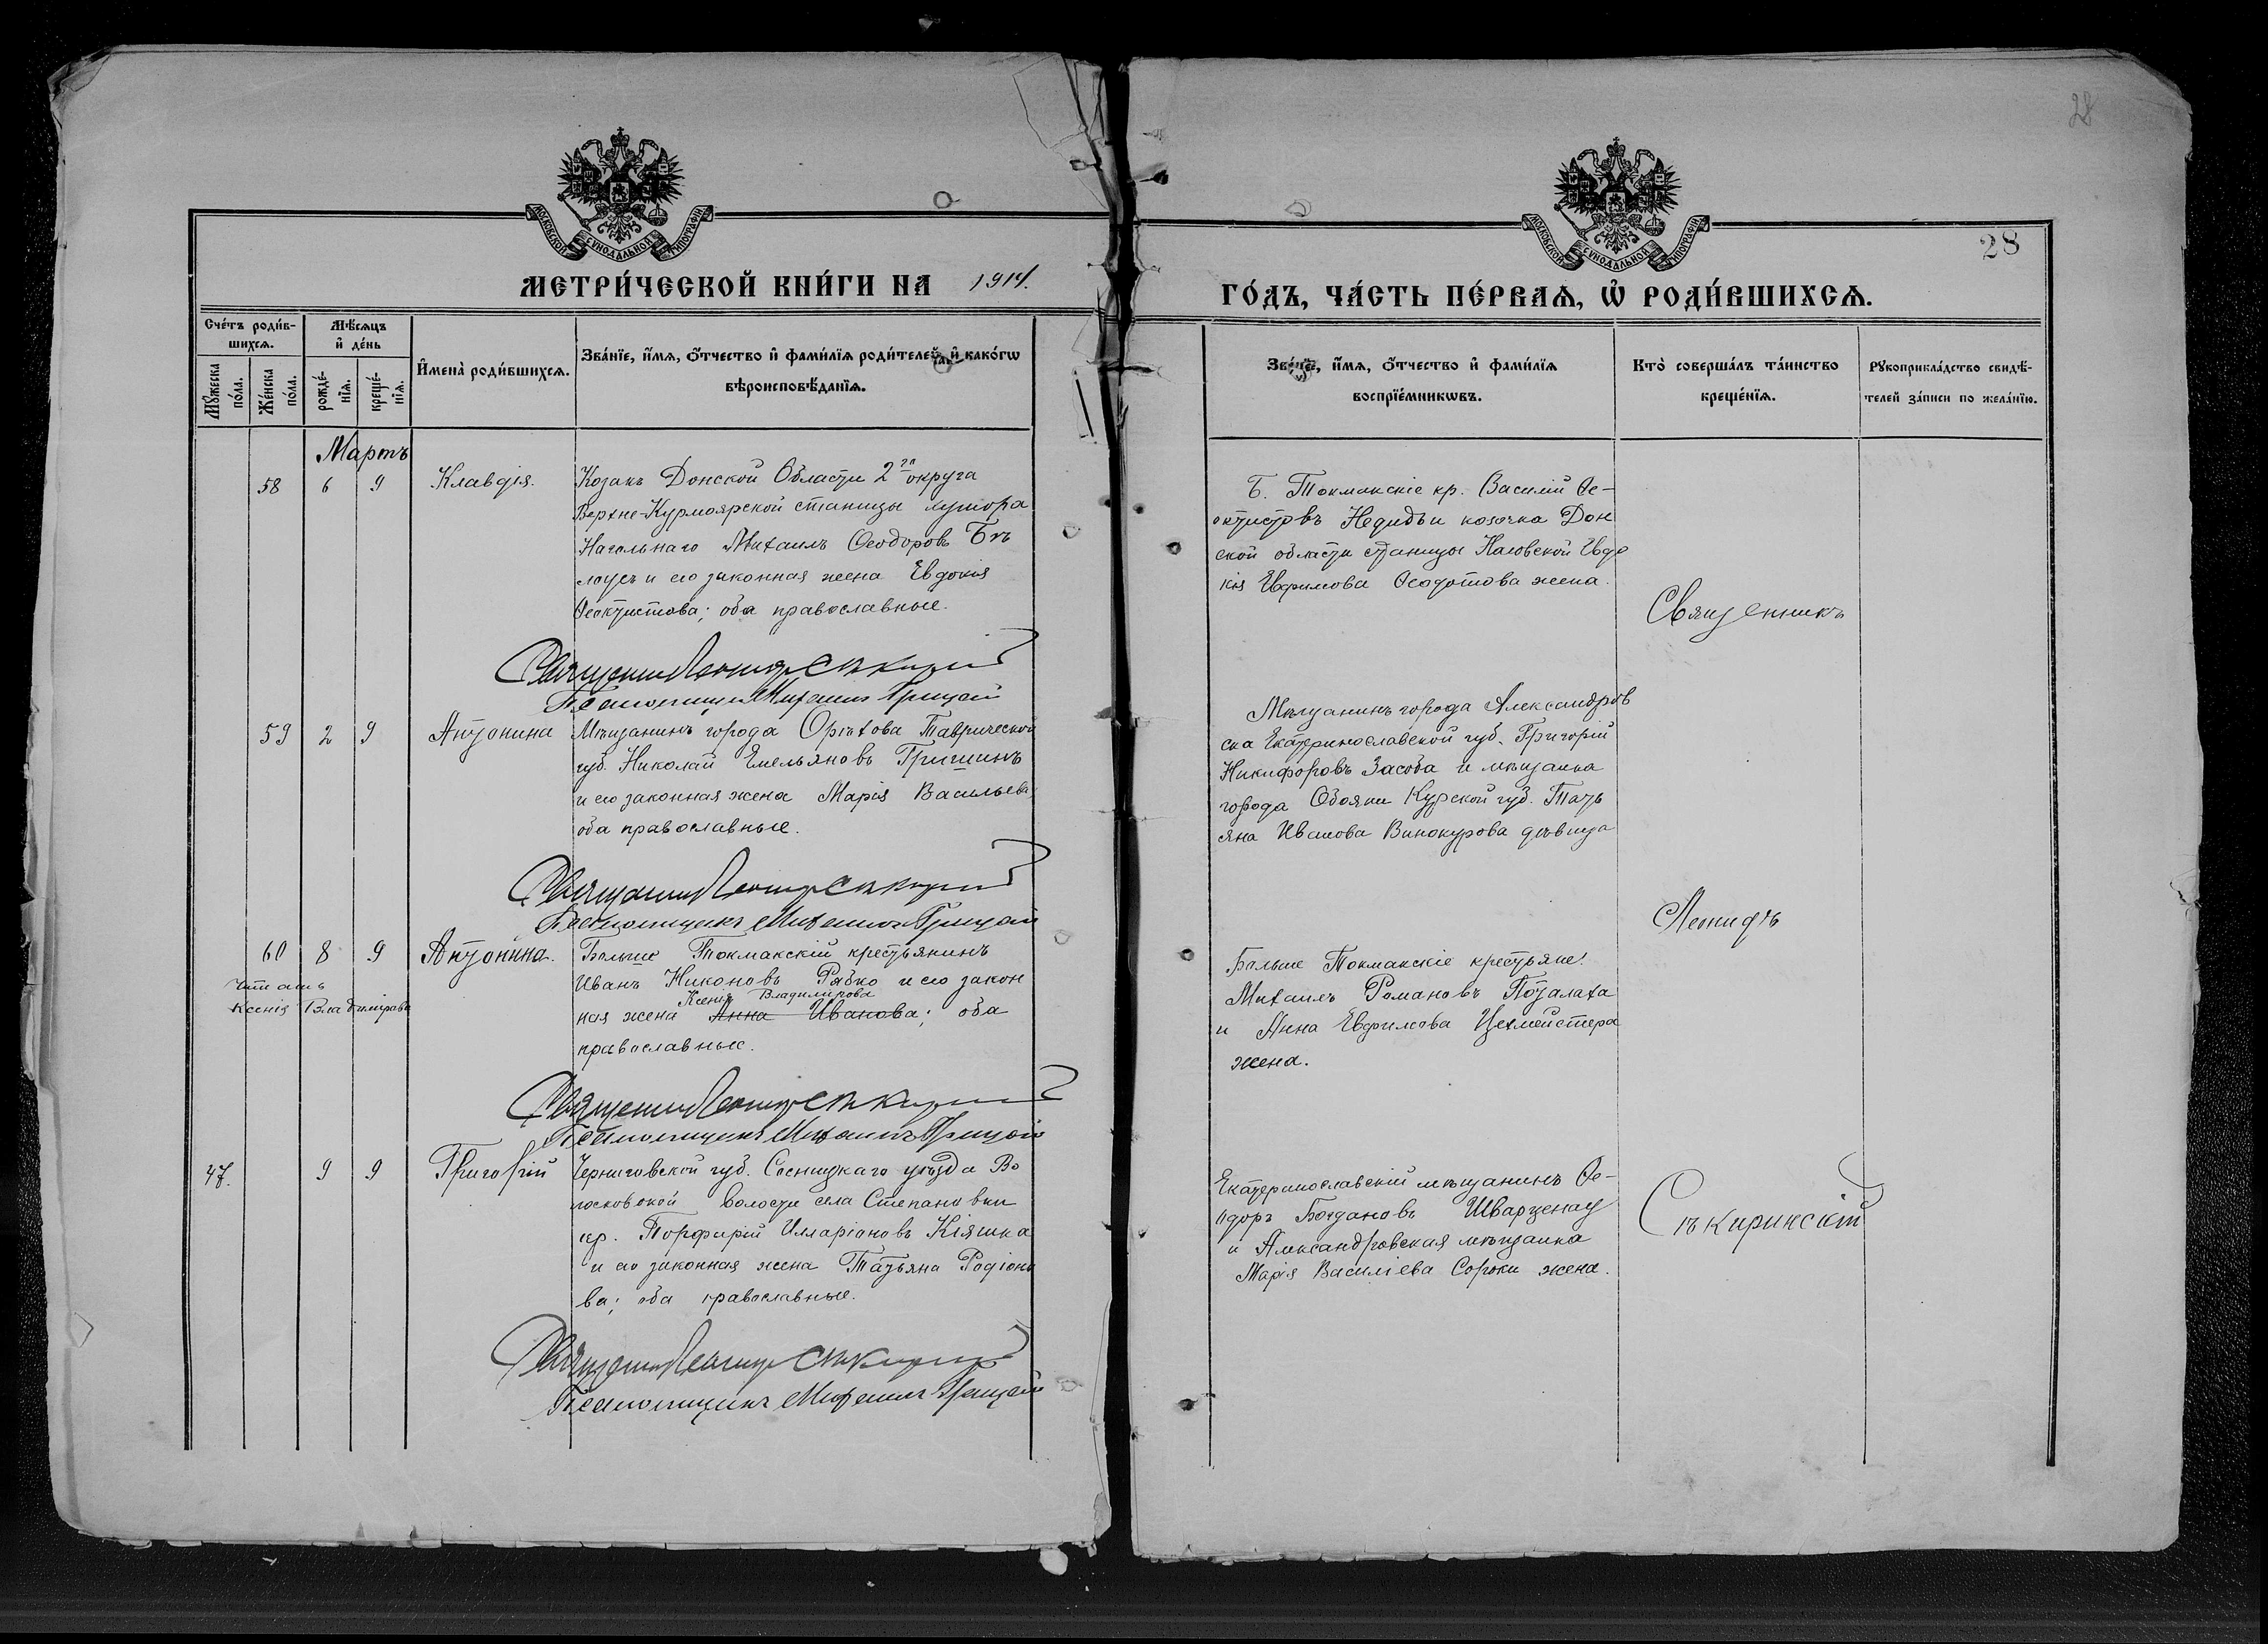 28
МОСКОВСКОЙ СѴНОДАЛЬНОЙ ТИПОГРАФІИ
МОСКОВСКОЙ СѴНОДАЛЬНОЙ ТИПОГРАФІИ
28
МЕТРИ́ЧЕСКОЙ КНИ́ГИ НА 1914.
ГО́ДЪ, ЧА́СТЬ ПЕ́РВАѦ, Ѽ РОДИ́ВШИХСѦ.
Сче́тъ роди́в-
шихсѧ.
Мꙋ́жеска по́ла.
Же́нска по́ла.
Мѣ́сѧцъ
и҆ де́нь
рожде́-
нїѧ.
креще́-
нїѧ.
И҆мена̀ роди́вшихсѧ.
Зва́нїе, и҆́мѧ, ѻ҆́тчество и҆ фами́лїѧ роди́телей, и҆ како́гѡ
вѣроисповѣ́данїѧ.
Зва́нїе, и҆́мѧ, ѻ҆́тчество и҆ фами́лїѧ
воспрїе́мникѡвъ.
Кто̀ соверша́лъ та́инство
креще́нїѧ.
Рꙋкоприкла́дство свидѣ́-
телей за́писи по жела́нїю.
Мартъ
58 6 9 Клавдія.
Козакъ Донской Области 2го округа
Верхне-Курмоярской станицы хутора
Нагольнаго Михаилъ Ѳеодоровъ Бѣ
лоусъ и его законная жена Евдокія
Ѳеоктистова; оба православные.
Священникъ Леонидъ Сѣкирин
Псаломщикъ Михаилъ Грицай
Б. Токмакскіе кр. Василій Ѳе-
октистовъ и козачка Дон
ской области станицы Евдо
кія Евфимова Ѳеодотова жена.
Священникъ
59 2 9 Антонина
Мѣщанинъ города Орѣхова Таврической
губ. Николай Емельяновъ Гришинъ
и его законная жена Марія Васильева
оба православные.
Священникъ Леонидъ Сѣкирин
Псаломщикъ Михаилъ Грицай
Мѣщанинъ города Александров
ска Екатеринославской губ. Григорій
Никифоровъ Засоба и мѣщанка
города Обояни Курской губ. Тать
яна Иванова Винокурова дѣвица
Леонидъ
60 8 9 Антонина.
Больше Токмакскій крестьянинъ
Иванъ Никоновъ Рябко и его закон
Ксенія Владимірова
ная жена Анна Иванова; оба
православные.
читать
Ксенія Владимірова
Священникъ Леонидъ Сѣкирин
Псаломщикъ Михаилъ Грицай
Больше Токмакскіе крестьяне:
Михаилъ Романовъ Поталаха
и Анна Евфимова Цехмейстера
жена.
47. 9 9 Григорій
Черниговской губ. Сосницкаго уѣзда Во
лосковской волости села Степановки
кр. Порфирій Илларіоновъ Кіяшка
и его законная жена Татьяна Родіоно
ва; оба православные.
Священникъ Леонидъ Сѣкирин
Псаломщикъ Михаилъ Грицай
Екатеринославскій мѣщанинъ Ѳе-
одоръ Богдановъ Шварценау
и Александровская мѣщанка
Марія Василіева Сороки жена.
Сѣкиринскій